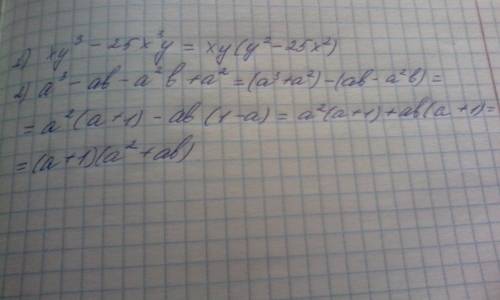 1) xy³ - 25x³y = xy(y² - 25x²)
2) a³ - ab - a²b + a² = (a³ + a²) - (ab - a²b) =
= a²(a + 1) - ab (1 - a) = a²(a + 1) + ab(a + 1) =
= (a + 1)(a² + ab)